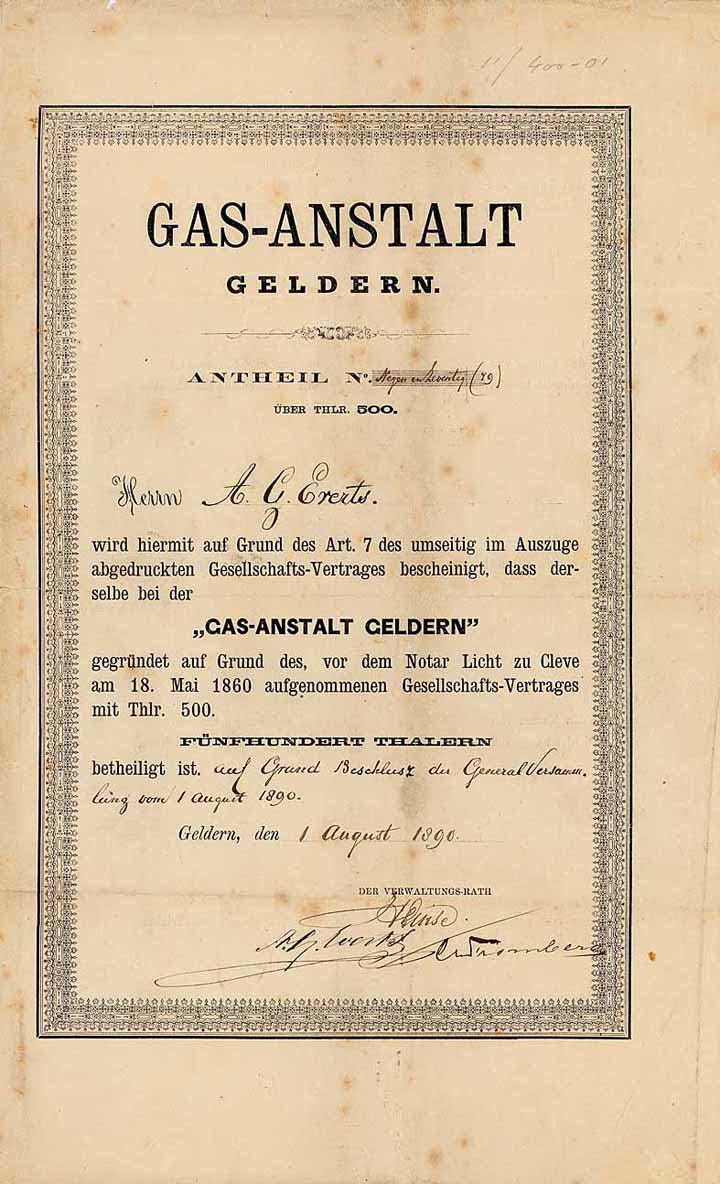 400-01
GAS-ANSTALT
GELDERN.
ANTHEIL No. Negen en Zeventig (79)
ÜBER THLR. 500.
Herrn A. G. Everts.
wird hiermit auf Grund des Art. 7 des umseitig im Auszuge
abgedruckten Gesellschafts-Vertrages bescheinigt, dass der-
selbe bei der
„GAS-ANSTALT GELDERN”
gegründet auf Grund des, vor dem Notar Licht zu Cleve
am 18. Mai 1860 aufgenommenen Gesellschafts-Vertrages
mit Thlr. 500.
FÜNFHUNDERT THALERN
betheiligt ist. auf Grund Beschlusz der General Versamm-
lung vom 1 August 1890.
Geldern, den 1 August 1890.
DER VERWALTUNGS-RATH